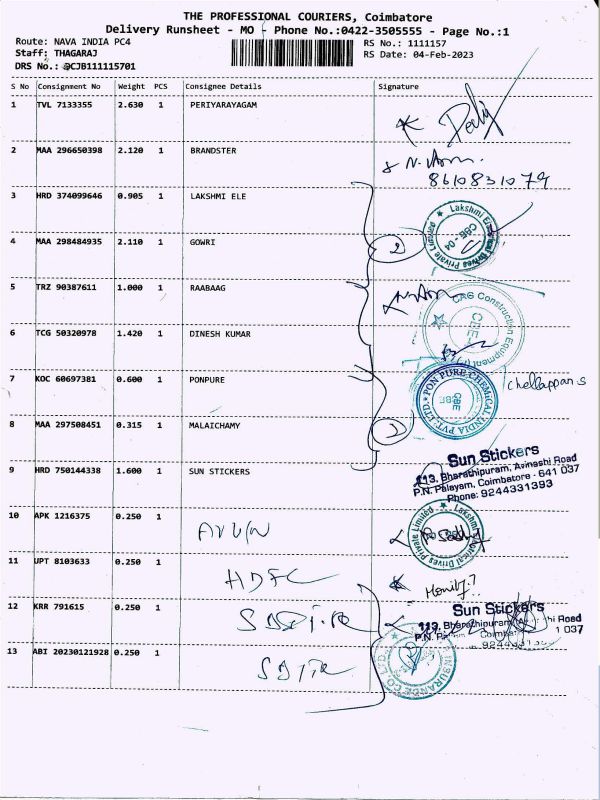 THE PROFESSIONAL COURIERS, Coimbatore
Delivery Runsheet - MO - Phone No.:0422-3505555 - Page No.:1
Route: NAVA INDIA PC4 RS No.: 1111157
Staff: THAGARAJ RS Date: 04-Feb-2023
DRS No.: @CJB111115701
S No Consignment No Weight PCS Consignee Details Signature
1 TVL 7133355 2.630 1 PERIYARAYAGAM
2 MAA 296650398 2.120 1 BRANDSTER
8610831079
3 HRD 374099646 0.905 1 LAKSHMI ELE
Lakshmi Electrical Drives Private Limited
CBE - 04
4 MAA 298484935 2.110 1 GOWRI
2
5 TRZ 90387611 1.000 1 RAABAAG
CAG Construction Equipment
CBE
6 TCG 50320978 1.420 1 DINESH KUMAR
7 KOC 60697381 0.600 1 PONPURE
PON PURE CHEMICAL INDIA PVT. LTD.
CBE
Chellappan S
8 MAA 297508451 0.315 1 MALAICHAMY
9 HRD 750144338 1.600 1 SUN STICKERS
Sun Stickers
113, Bharathipuram, Avinashi Road
P.N. Palayam, Coimbatore - 641 037
Phone: 9244331393
10 APK 1216375 0.250 1
Lakshmi Electrical Drives Private Limited
11 UPT 8103633 0.250 1 HDFC
12 KRR 791615 0.250 1
Sun Stickers
113, Bharathipuram,
13 ABI 20230121928 0.250 1
INSURANCE CO. LTD